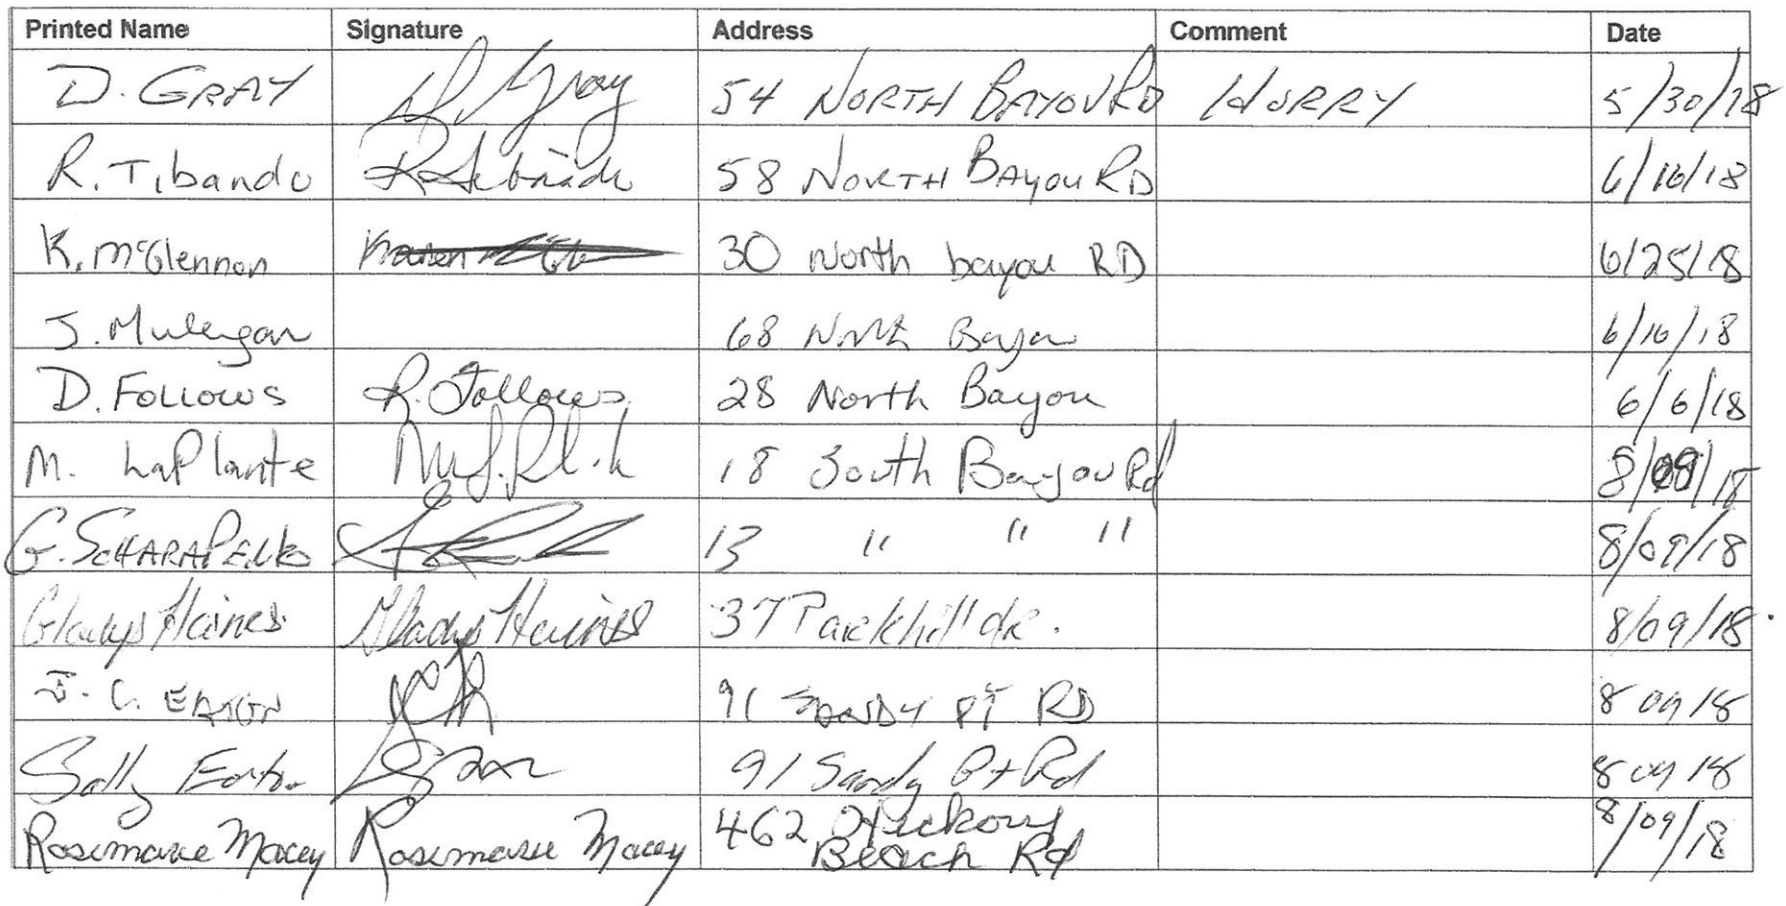 Printed Name Signature Address Comment Date
D. GRAY D. Gray 54 NORTH BAYOU RD HURRY 5/30/18
R. Tibando R. Tibando 58 NORTH BAYOU RD 6/16/18
K. McGlennon 30 North bayou RD 6/25/18
J. Mulligan 68 North Bayou 6/16/18
D. FOLLOWS R. Follows 28 North Bayou 6/6/18
M. LaPlante 18 South Bayou Rd 8/09/18
G. SCHARAPENKO 13 " " " 8/09/18
Gladys Haines Gladys Haines 37 Parkhill dr. 8/09/18
J. C. EATON 91 SANDY PT RD 8 09 18
Sally Eaton 91 Sandy Pt Rd 8 09 18
Rosemarie Macey Rosemarie Macey 462 Hickory
Beach Rd 8/09/18